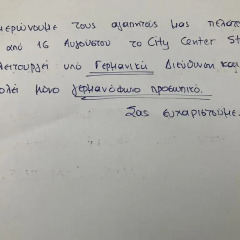 μερώνουμε τους αγαπητούς μας πελάτ
από 16 Αυγούστου το City Center St
λειτουργεί υπό Γερμανική Διεύθυνση και
μόνο γερμανόφωνο προσωπικό.
Σας ευχαριστούμε.